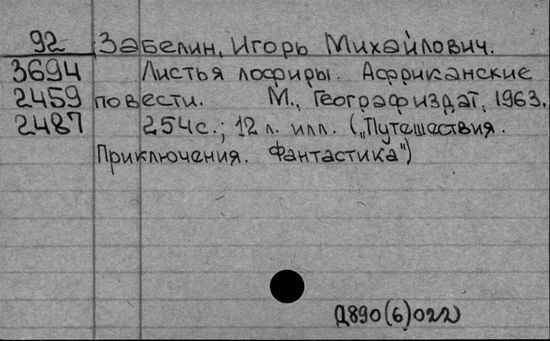 92 Забелин, Игорь Михайлович.
3694 Листья лофиры. Африканские
2459 повести. М., Географиздат, 1963.
2487 254с.; 12 л. илл. („Путешествия.
Приключения. Фантастика")
Д890(6)022